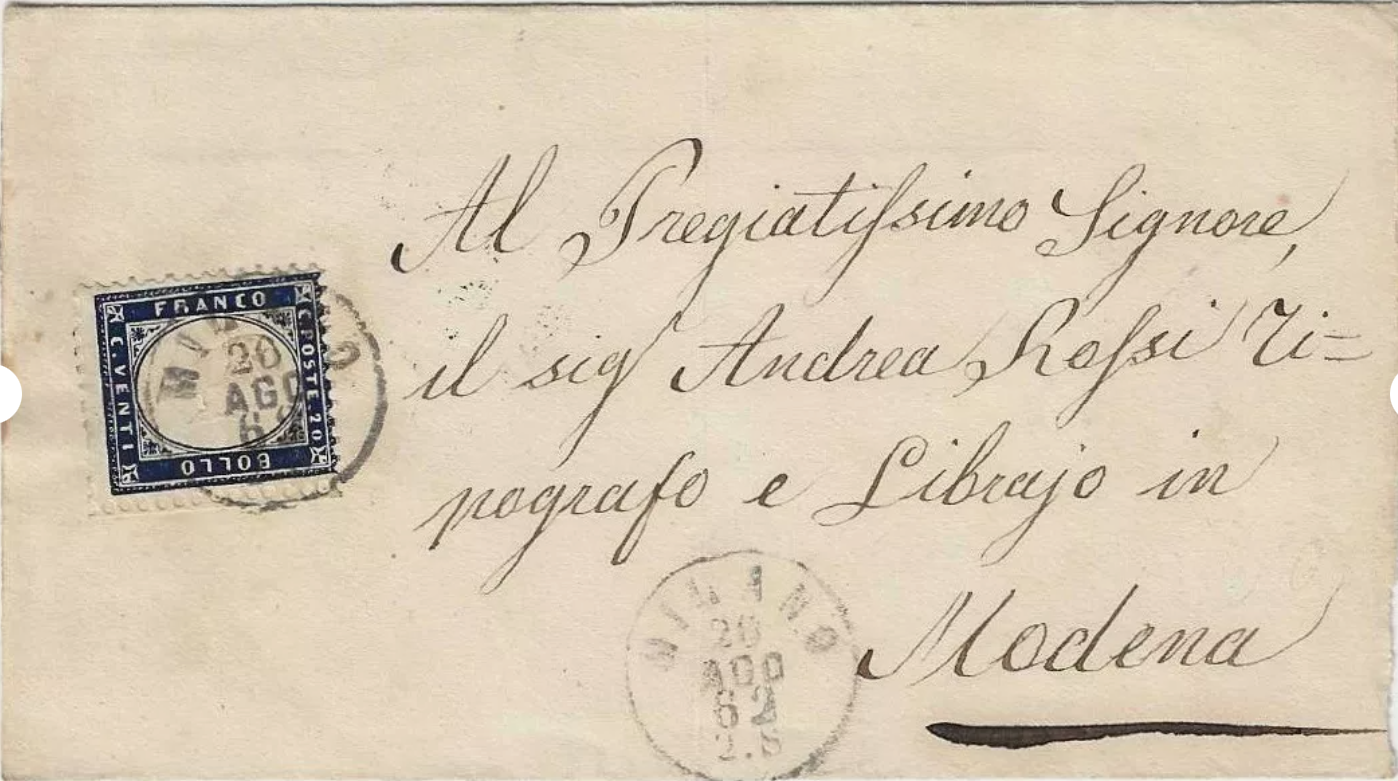 Al Pregiatissimo Signore,
il sig Andrea Rossi Ti=
pografo e Librajo in
Modena
FRANCO
C. POSTE. 20
BOLLO
C. VENTI
20
AGO
MILANO
20
AGO
62